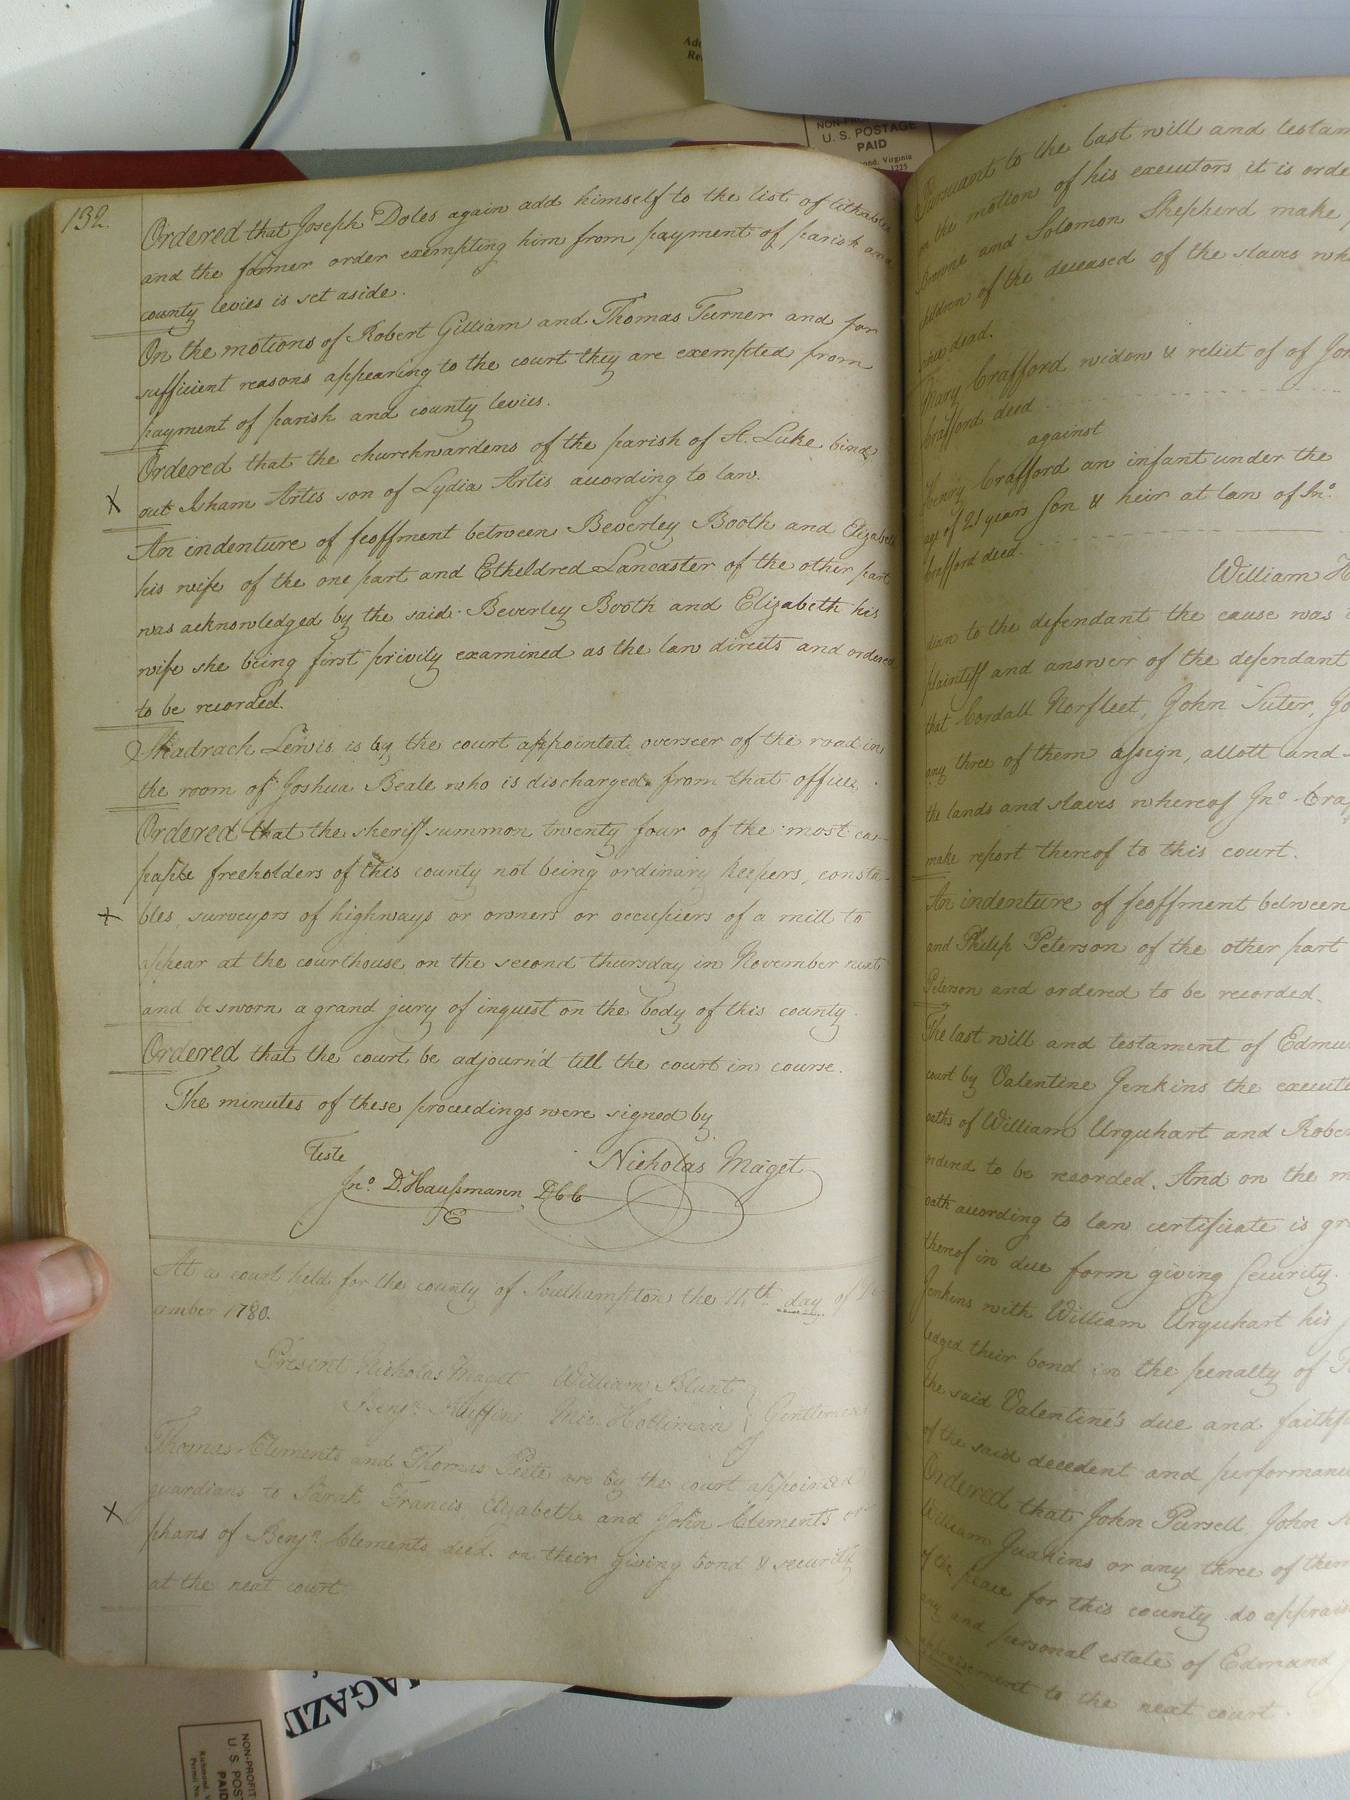 132.
Ordered that Joseph Doles again add himself to the list of tithables
and the former order exempting him from payment of parish and
county levies is set aside.
On the motions of Robert Gilliam and Thomas Turner and for
sufficient reasons appearing to the court they are exempted from
payment of parish and county levies.
Ordered that the churchwardens of the parish of St. Luke bind
out Isham Artis son of Lydia Artis according to law.
An indenture of feoffment between Beverley Booth and Elizabeth
his wife of the one part and Etheldred Lancaster of the other part
was acknowledged by the said Beverley Booth and Elizabeth his
wife she being first privity examined as the law directs and ordered
to be recorded.
Shadrach Lewis is by the court appointed overseer of the road in
the room of Joshua Beale who is discharged from that office.
Ordered that the sheriff summon twenty four of the most ca-
pable freeholders of this county not being ordinary keepers, consta-
bles, surveyors of highways or owners or occupiers of a mill to
appear at the courthouse on the second thursday in November next
and be sworn a grand jury of inquest on the body of this county.
Ordered that the court be adjourn'd till the court in course.
The minutes of these proceedings were signed by
Teste
Nicholas Maget
Jno. D. Haussmann D.C.C
At a court held for the county of Southampton the 14th day of
1780.
Present Nicholas Maget William Blunt
Benja. Ruffin Mic. Holliman Gentlemen
Thomas Clements and Thomas Pete are by the court appointed
guardians to Sarah, Francis, Elizabeth and John Clements or
phans of Benja. Clements decd. on their giving bond & security
at the next court
Pursuant to the last will and testam
on the motion of his executors it is orde
Browne and Solomon Shepherd make
children of the deceased of the slaves wh
dead.
Mary Crafford widow & relict of of Jo
Crafford decd
against
Henry Crafford an infant under the
age of 21 years Son & heir at law of Jno.
Crafford decd.
William H
dian to the defendant the cause was
plaintiff and answer of the defendant
that Cordall Norfleet, John Suter, Jo
any three of them assign, allott and
the lands and slaves whereof Jno Cra
make report thereof to this court.
An indenture of feoffment between
and Philip Peterson of the other part
Peterson and ordered to be recorded.
The last will and testament of Edmu
court by Valentine Jenkins the execut
oaths of William Urquhart and Rober
ordered to be recorded. And on the m
oath according to law certificate is gr
thereof in due form giving Security.
Jenkins with William Urquhart his
ledged their bond in the penalty of
the said Valentine's due and faithf
of the said decedent and performanc
Ordered that John Pursell John
William Judkins or any three of them
of the peace for this county do apprais
any and personal estate of Edmund
appraisement to the next court.
NON-PR
U. S. POSTAGE
PAID
ond, Virginia
1225
MAGAZI
NON-PROFIT
U. S. POS
PAID
Richmond, V
Permit No.